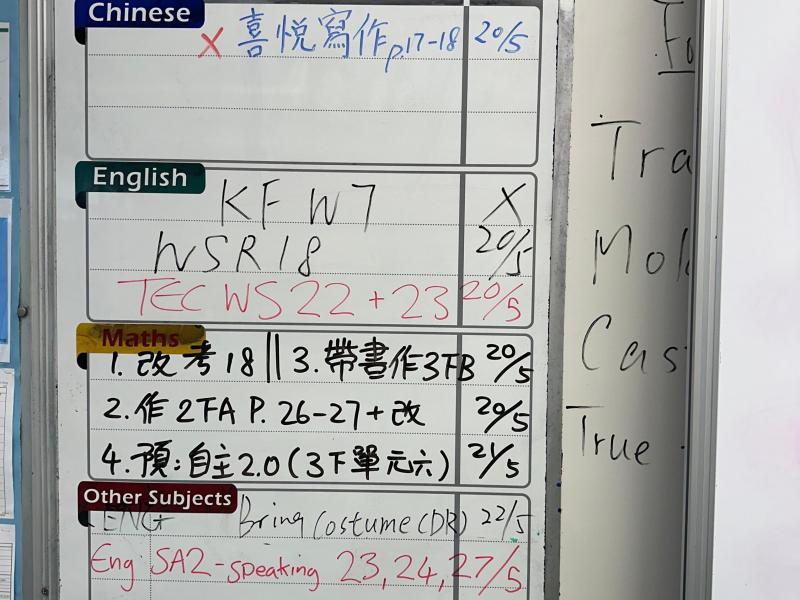 Chinese
x 喜悅寫作 p.17-18 20/5
English
KF W7 X
WSR18 20/5
TEC WS 22 + 23 20/5
Maths
1. 改考18 || 3. 帶書作3下B 20/5
2. 作2下A P. 26-27+改 20/5
4. 預:自主2.0(3下單元六) 21/5
Other Subjects
ENG Bring Costume (DR) 22/5
Eng SA2-speaking 23, 24, 27/5
Tra
Cas
True